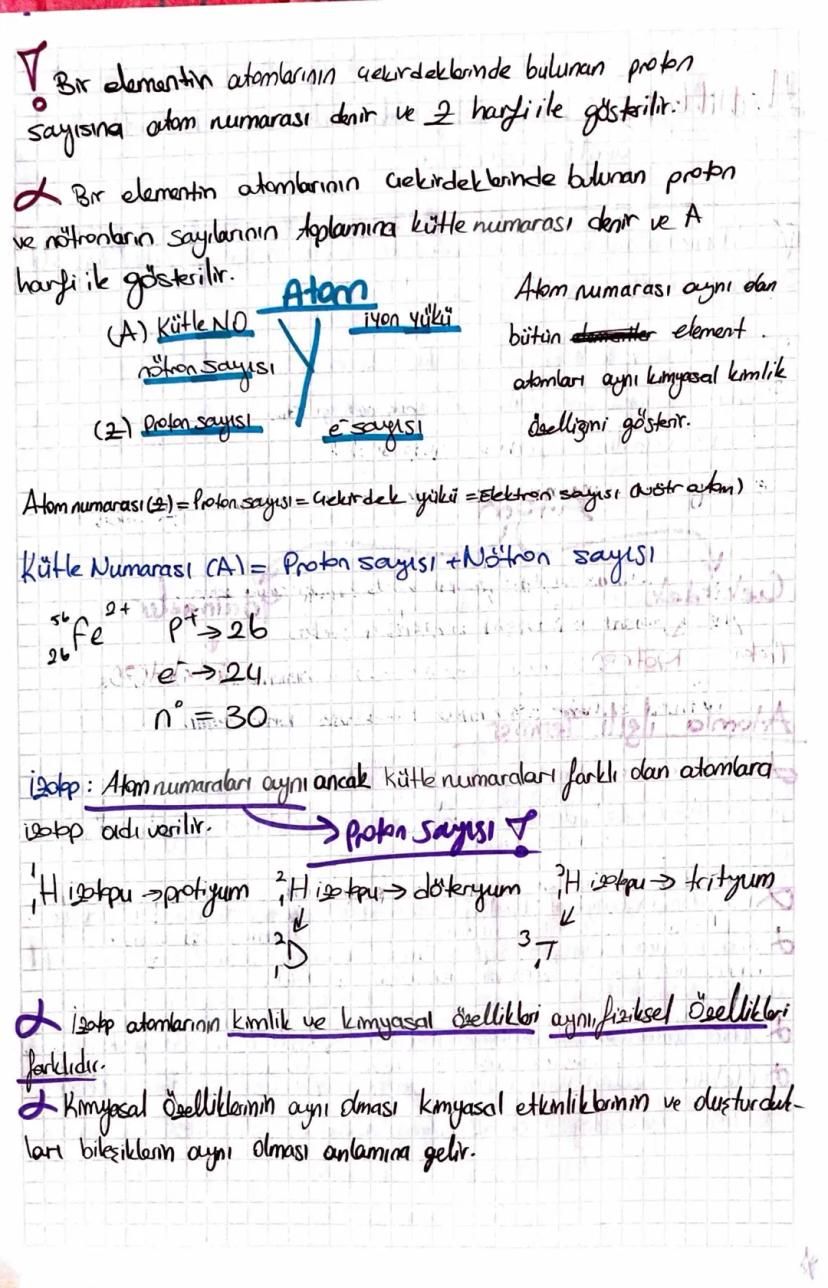 ! Bir elementin atomlarının çekirdeklerinde bulunan proton
sayısına atom numarası denir ve Z harfi ile gösterilir.
Bir elementin atomlarının çekirdeklerinde bulunan proton
ve nötronların sayılarının toplamına kütle numarası denir ve A
harfi ile gösterilir.
Atom
(A) Kütle NO
iyon yükü
nötron sayısı
(Z) Proton sayısı
e⁻ sayısı
Atom numarası aynı olan
bütün element
atomları aynı kimyasal kimlik
özelliğini gösterir.
Atom numarası (Z) = Proton sayısı = Çekirdek yükü = Elektron sayısı (Nötr atom)
Kütle Numarası (A) = Proton sayısı + Nötron sayısı
⁵⁶₂₆Fe²⁺ P⁺ → 26
e⁻ → 24
n° = 30
izotop : Atom numaraları aynı ancak kütle numaraları farklı olan atomlara
izotop adı verilir. → Proton sayısı !
¹₁H izotopu → protiyum ²₁H izotopu → döteryum ³₁H izotopu → trityum
²₁D ³₁T
İzotop atomlarının kimlik ve kimyasal özellikleri aynı, fiziksel özellikleri
farklıdır.
Kimyasal özelliklerinin aynı olması kimyasal etkinliklerinin ve oluşturduk-
ları bileşiklerin aynı olması anlamına gelir.